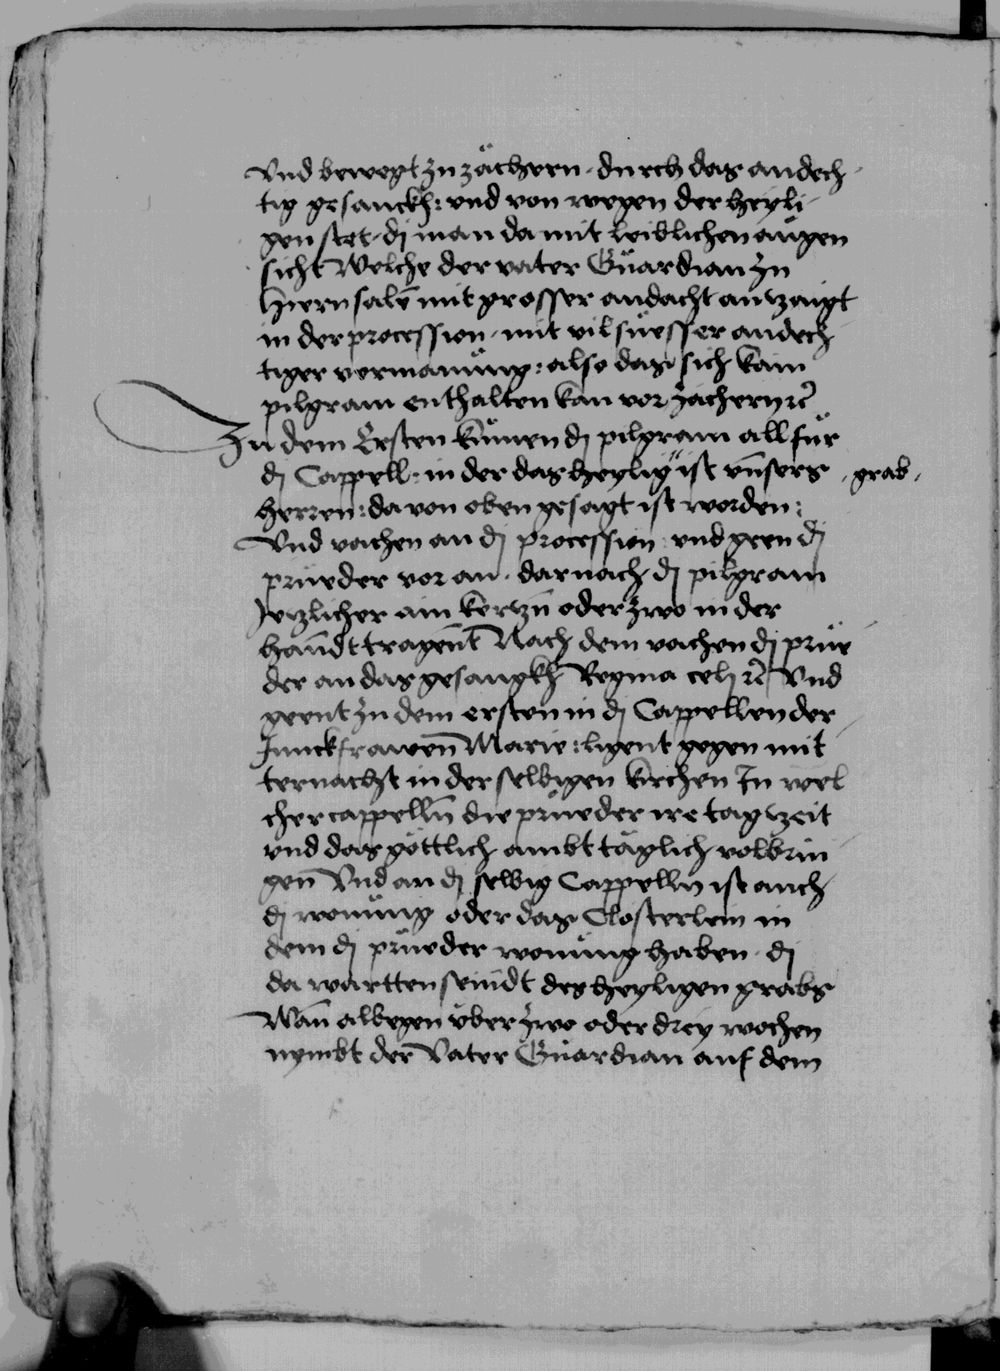 Vnd bewegt zu zächern · durch das andech-
tig gesanckh : vnd von wegen der heyli-
gen stet · dj man da mit leiblichen augen
sicht Welche der vater Guardian zu
Hierusalē mit grosser andacht antzaigt
in der procession · mit vil süesser andech-
tiger vermanüng : also das sich kain
pilgram enthalten kan vor zächern rc̄
Zu dem Ersten kumen dj pilgram all für
dj Cappell : in der das heylig " ist vnsers · grab ·
herren : da von oben gesagt ist worden :
Vnd vachen an dj procession : vnd geen dj
prüeder vor an · darnach dj pilgram
Yetzlicher ain kertzn̄ oder zwo in der
han̄dt tragen̄t Nach dem vachen dj prüe-
der an das gesangkh Regina celj rc̄ Vnd
geent zu dem ersten in dj Cappellen der
Junckfrawen̄ Marie : ligent gegen mit-
ternacht in der selbigen kirchen In wel-
cher cappelln̄ die prüeder ire tagtzeit
vnd das göttlich ambt täglich volbrin-
gen̄ Vnd an dj selbig Cappelln ist auch
dj wonüng oder das Closterlein in
dem dj prüeder wonüng haben · dj
da wartten sein̄dt des heyligen grabs
Wan̄ albegen über zwo oder drey wochen
nymbt der Vater Guardian auf dem